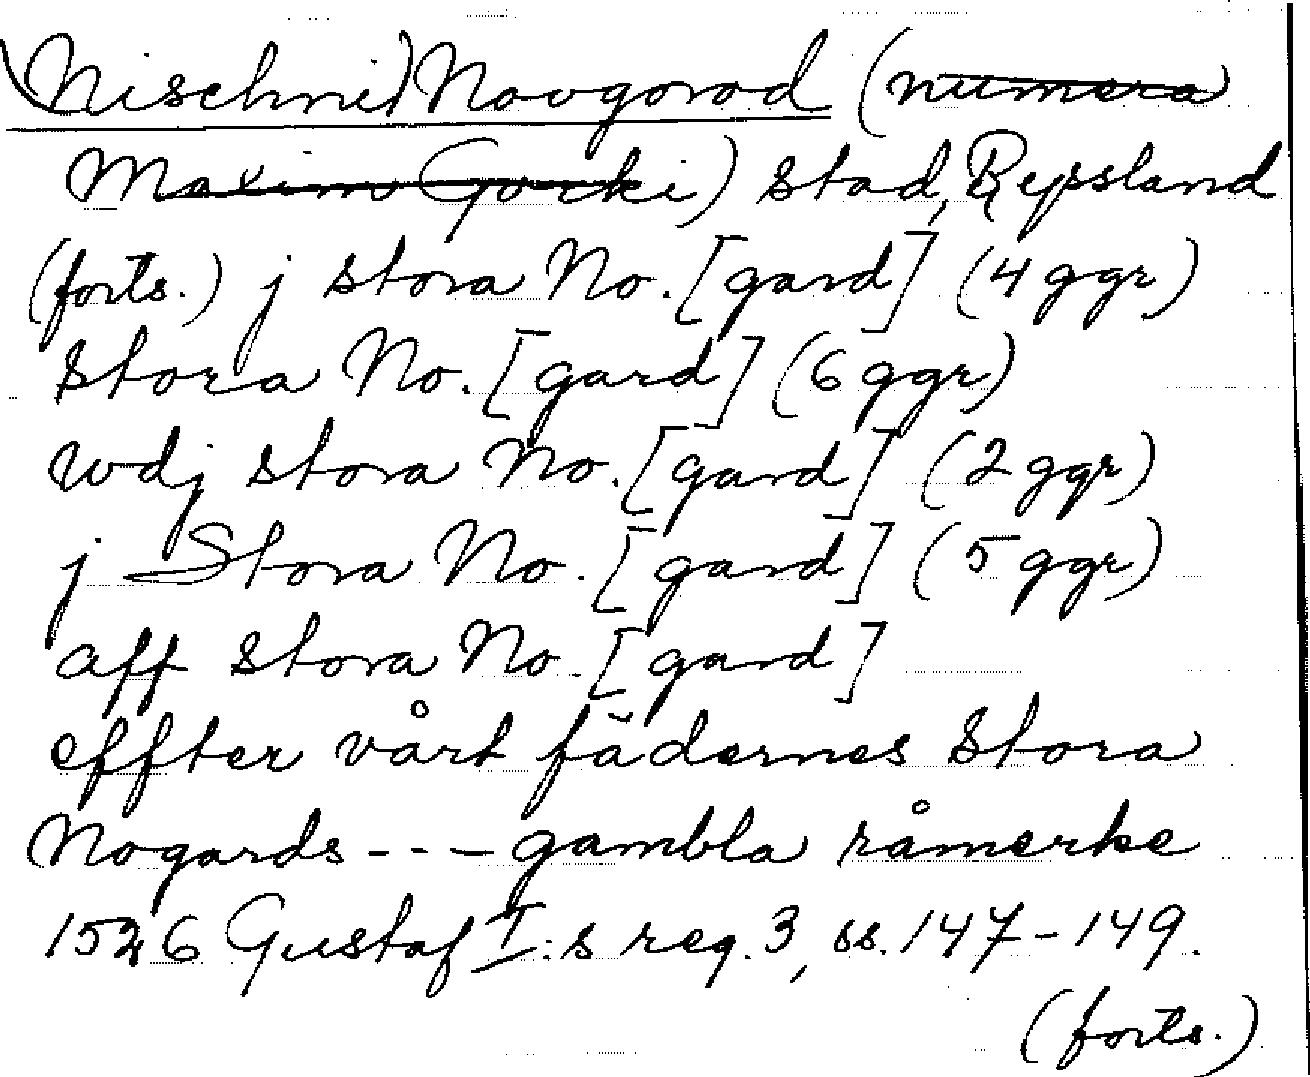 (Nischni) Novgorod (numera
Maxim Gorki) stad, Ryssland
(forts.) j stora No. [gard] (4 ggr)
stora No. [gard] (6 ggr)
wdj stora No. [gard] (2 ggr)
j Stora No. [gard] (5 ggr)
aff stora No. [gard]
effter vårt fädernes Stora
Nogards --- gambla råmerke
1526 Gustaf I:s reg. 3, ss. 147-149.
(forts.)